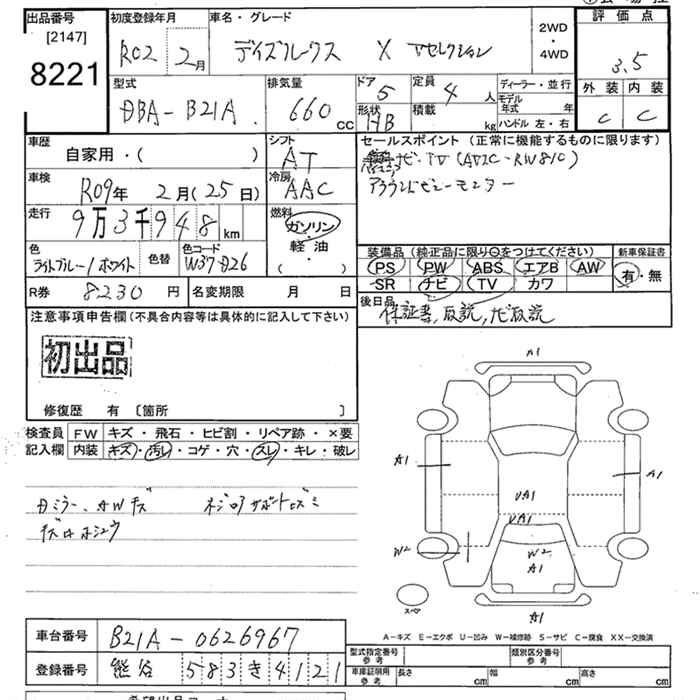 出品番号
[2147]
8221
初度登録年月
R02 2月
車名・グレード
デイズルークス X Vセレクション
2WD
・
4WD
評価点
3.5
外装 内装
C C
型式
DBA-B21A
排気量
660 CC
ドア
5
形状
HB
定員
4 人
積載
kg
ディーラー・並行
モデル年式 年
ハンドル 左・右
車歴
自家用・( )
シフト
AT
セールスポイント (正常に機能するものに限ります)
ナビ・TV (AVIC-RW810)
アラウンドビューモニター
車検
R09年 2月(25日)
冷房
AAC
走行
9万3千948km
燃料
ガソリン
・
軽・油
( ・ )
色
ライトブルー/ホワイト
色替
色コード
W37-B26
装備品 (純正品に限り○をつけてください)
PS PW ABS エアB AW
SR ナビ TV カワ
新車保証書
有・無
R券 8230円
名変期限 月 日
後日品
保証書, 取説, ナビ取説
注意事項申告欄(不具合内容等は具体的に記入して下さい)
初出品
修復歴 有 〔箇所 〕
検査員記入欄
FW キズ・飛石・ヒビ割・リペア跡・×要
内装 キズ・汚レ・コゲ・穴・スレ・キレ・破レ
Dミラー、AWキズ
キズ有ホシュウ
A1
A1
A1
UA1
UA1
W2
W2
A1
A1
スペア
A-キズ E-エクボ U-凹み W-補修跡 S-サビ C-腐食 XX-交換済
車台番号 B21A-0626967
登録番号 熊谷 583 き 4121
型式指定番号 参考
類別区分番号 参考
車庫証明用 参考
長さ cm
幅 cm
高さ cm